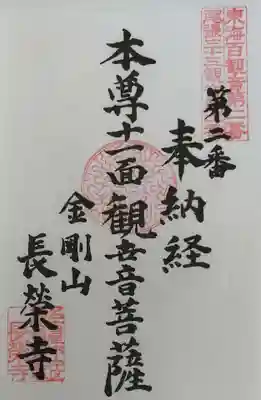 東海百観音第二番
尾張三十三観音
第二番
奉納経
本尊十一面観世音菩薩
金剛山
長榮寺